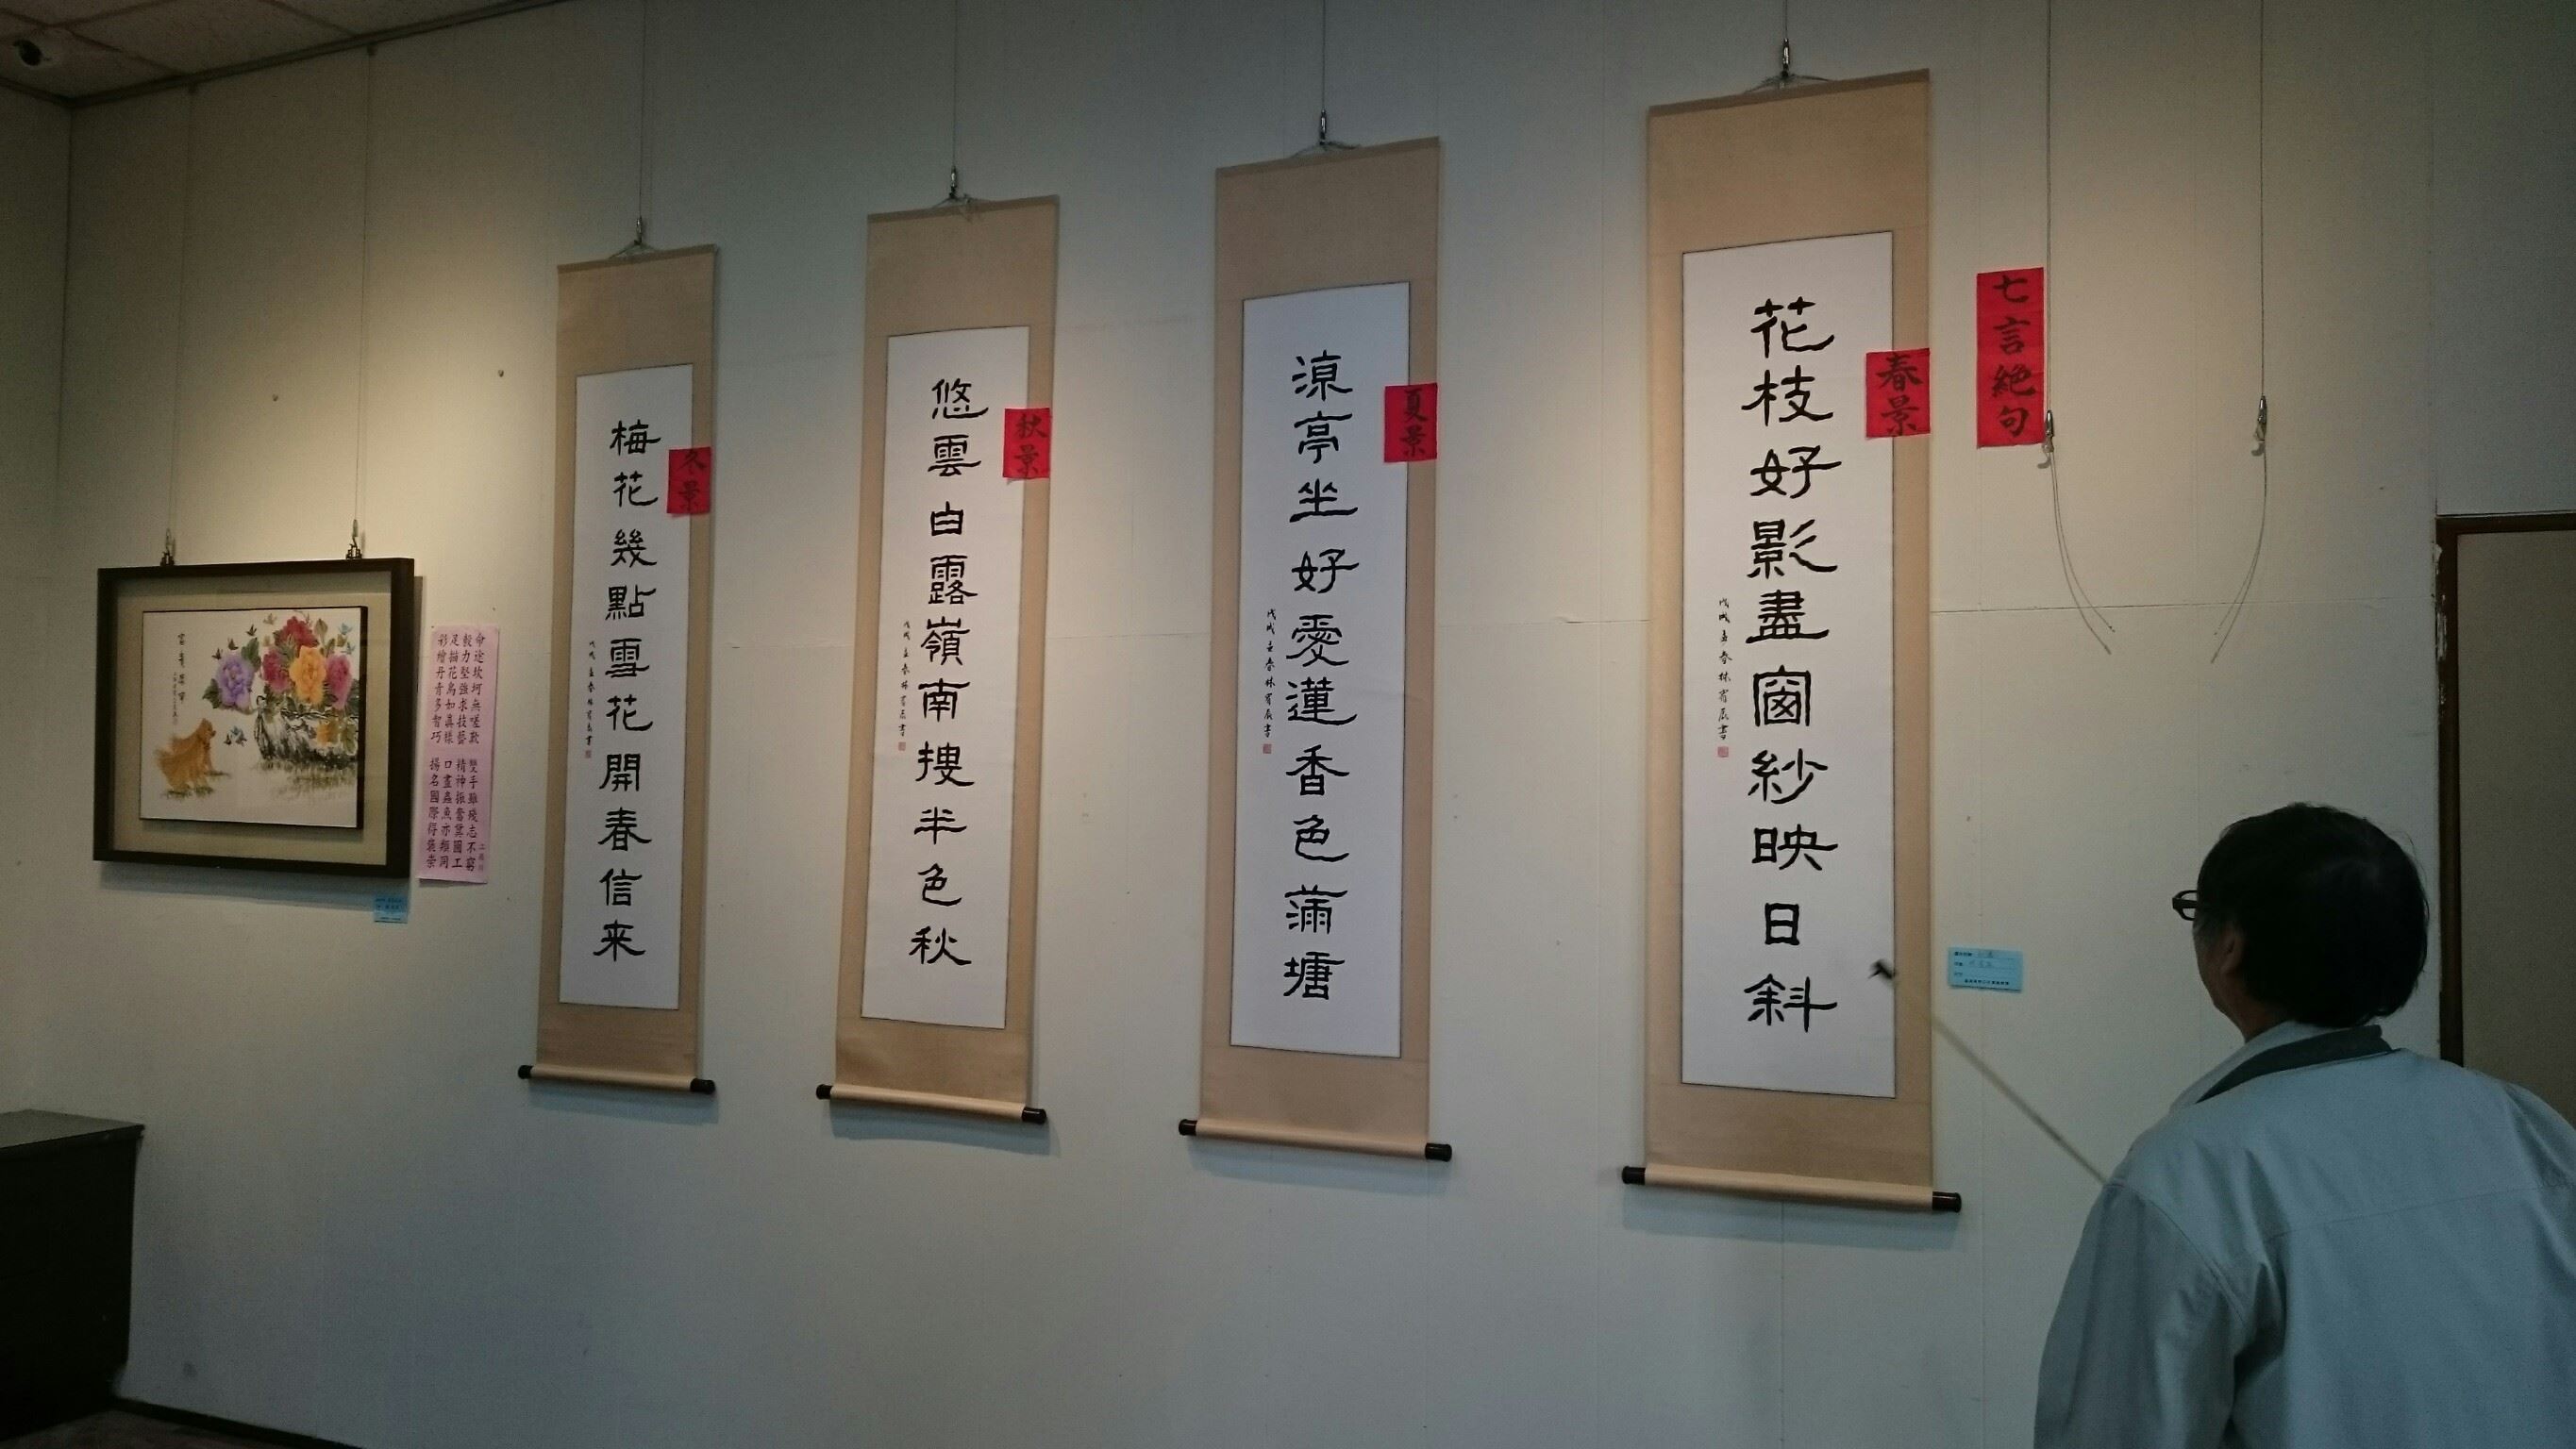 七言絕句
春景
花枝好影盡窗紗映日斜
戊戌孟春林宥辰書
夏景
涼亭坐好愛蓮香色滿塘
戊戌孟春林宥辰書
秋景
悠雲白露嶺南搜半色秋
戊戌孟春林宥辰書
冬景
梅花幾點雪花開春信来
戊戌孟春林宥辰書
命途坎坷無嗟歎 雙手雖殘志不窮
毅力堅強求技藝 精神振奮黨圖工
足描花鳥如真樣 口畫蟲魚亦類同
彩繪丹青多智巧 揚名國際得褒崇